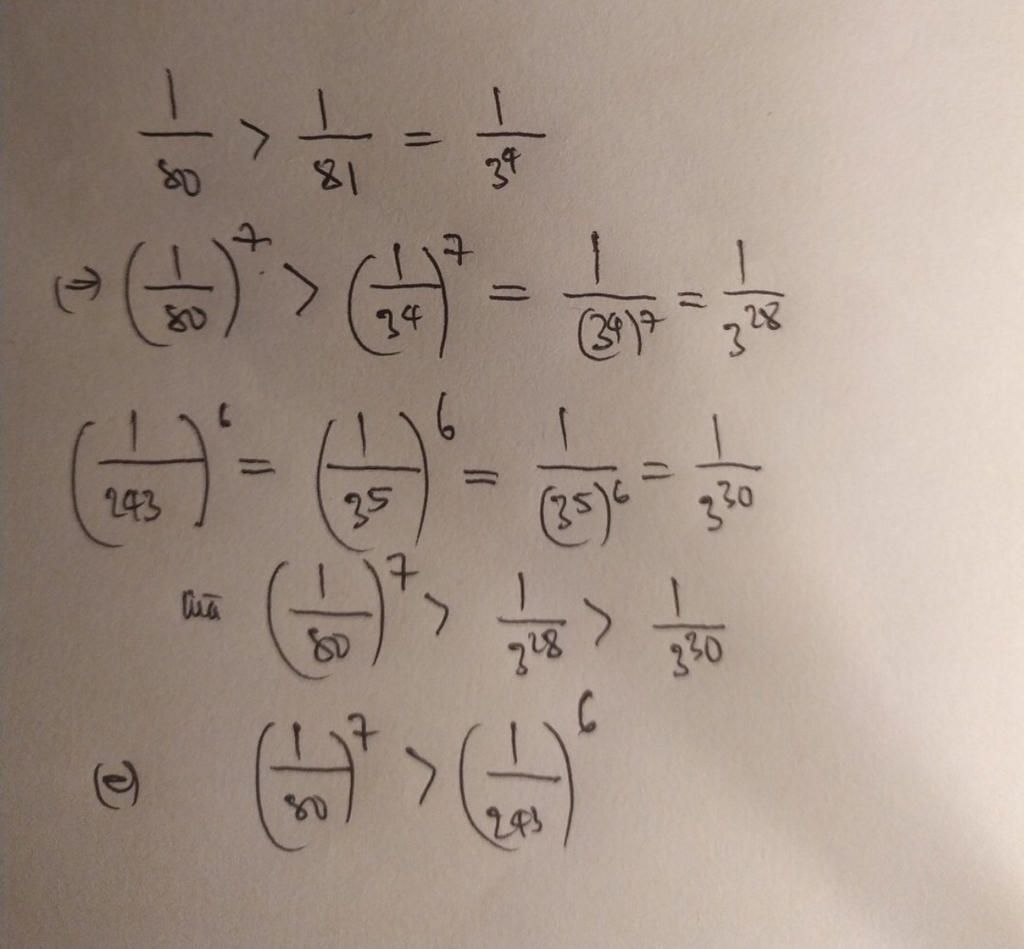 1/80 > 1/81 = 1/3^4
(⇒) (1/80)^7 > (1/3^4)^7 = 1/(3^4)^7 = 1/3^28
(1/243)^6 = (1/3^5)^6 = 1/(3^5)^6 = 1/3^30
(1/80)^7 > 1/3^28 > 1/3^30
(1/80)^7 > (1/243)^6